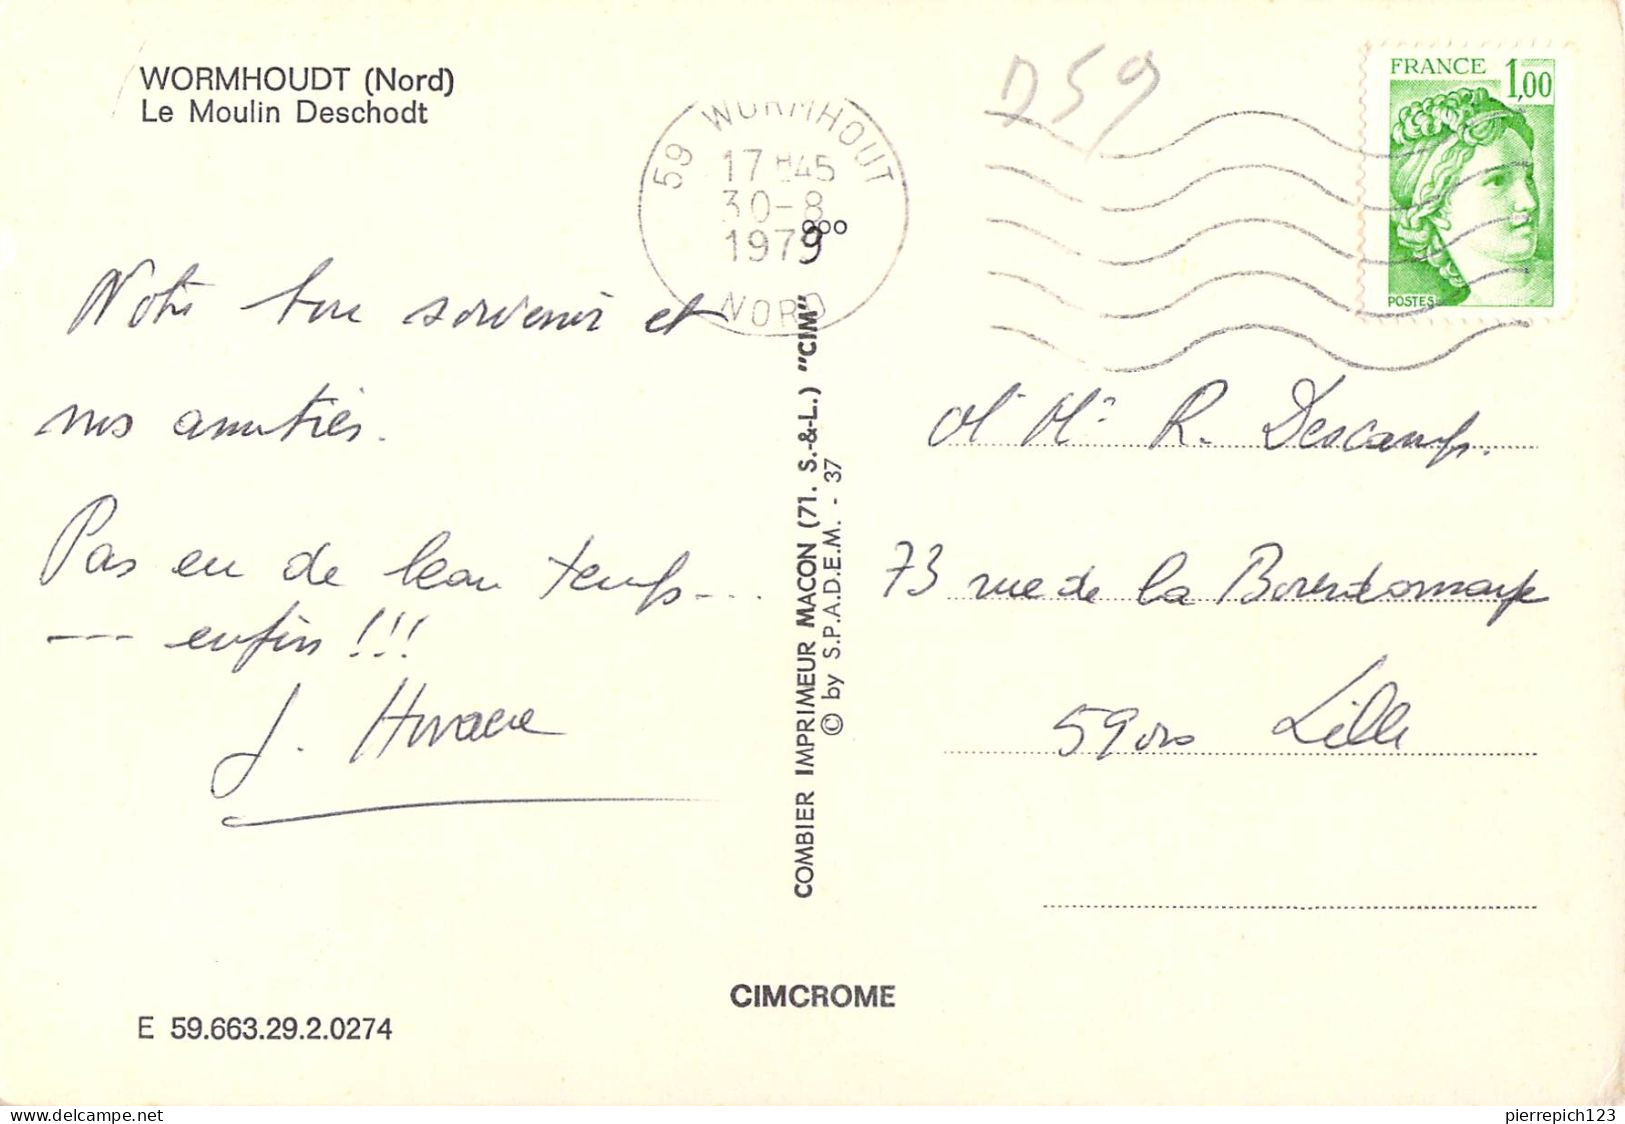 WORMHOUDT (Nord)
Le Moulin Deschodt
D59
FRANCE 1,00
POSTES
59 WORMHOUT
17 H45
30-8
1979
NORD
Notre bon souvenir et
nos amitiés.
Pas eu de beau temps...
--- enfin !!!
J.
COMBIER IMPRIMEUR MACON (71. S.-&-L.) "CIM"
© by S.P.A.D.E.M. - 37
M. Me R. Descamps.
73 rue de la Bourdonnaye
59000 Lille
CIMCROME
E 59.663.29.2.0274
delcampe.net
pierrepich123